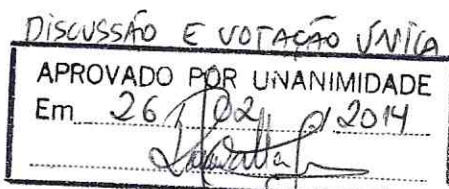 DISCUSSÃO E VOTAÇÃO ÚNICA
APROVADO POR UNANIMIDADE
Em 26 / 02 / 2014